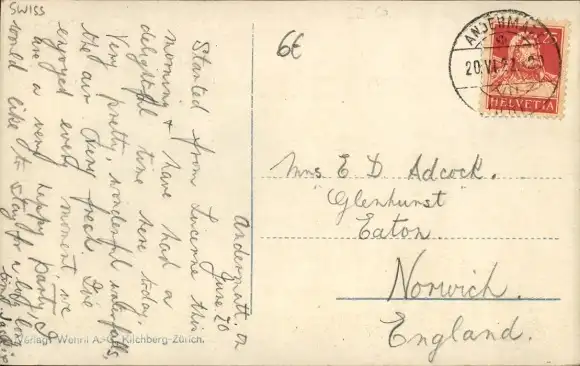 SWISS
6€
ANDERMATT
20.VI.
HELVETIA
Andermatt, on
June 20
Started from Lucerne this
morning & have had a
delightful time here today.
Very pretty, wonderful waterfalls,
the air very fresh. I've
enjoyed every moment, we
are a very happy party, I
would like to stay for a long long
time. Jackie
Verlag: Wehrli A.-G. Kilchberg-Zürich.
Mrs E D Adcock.
"Glenhurst"
Eaton.
Norwich.
England.